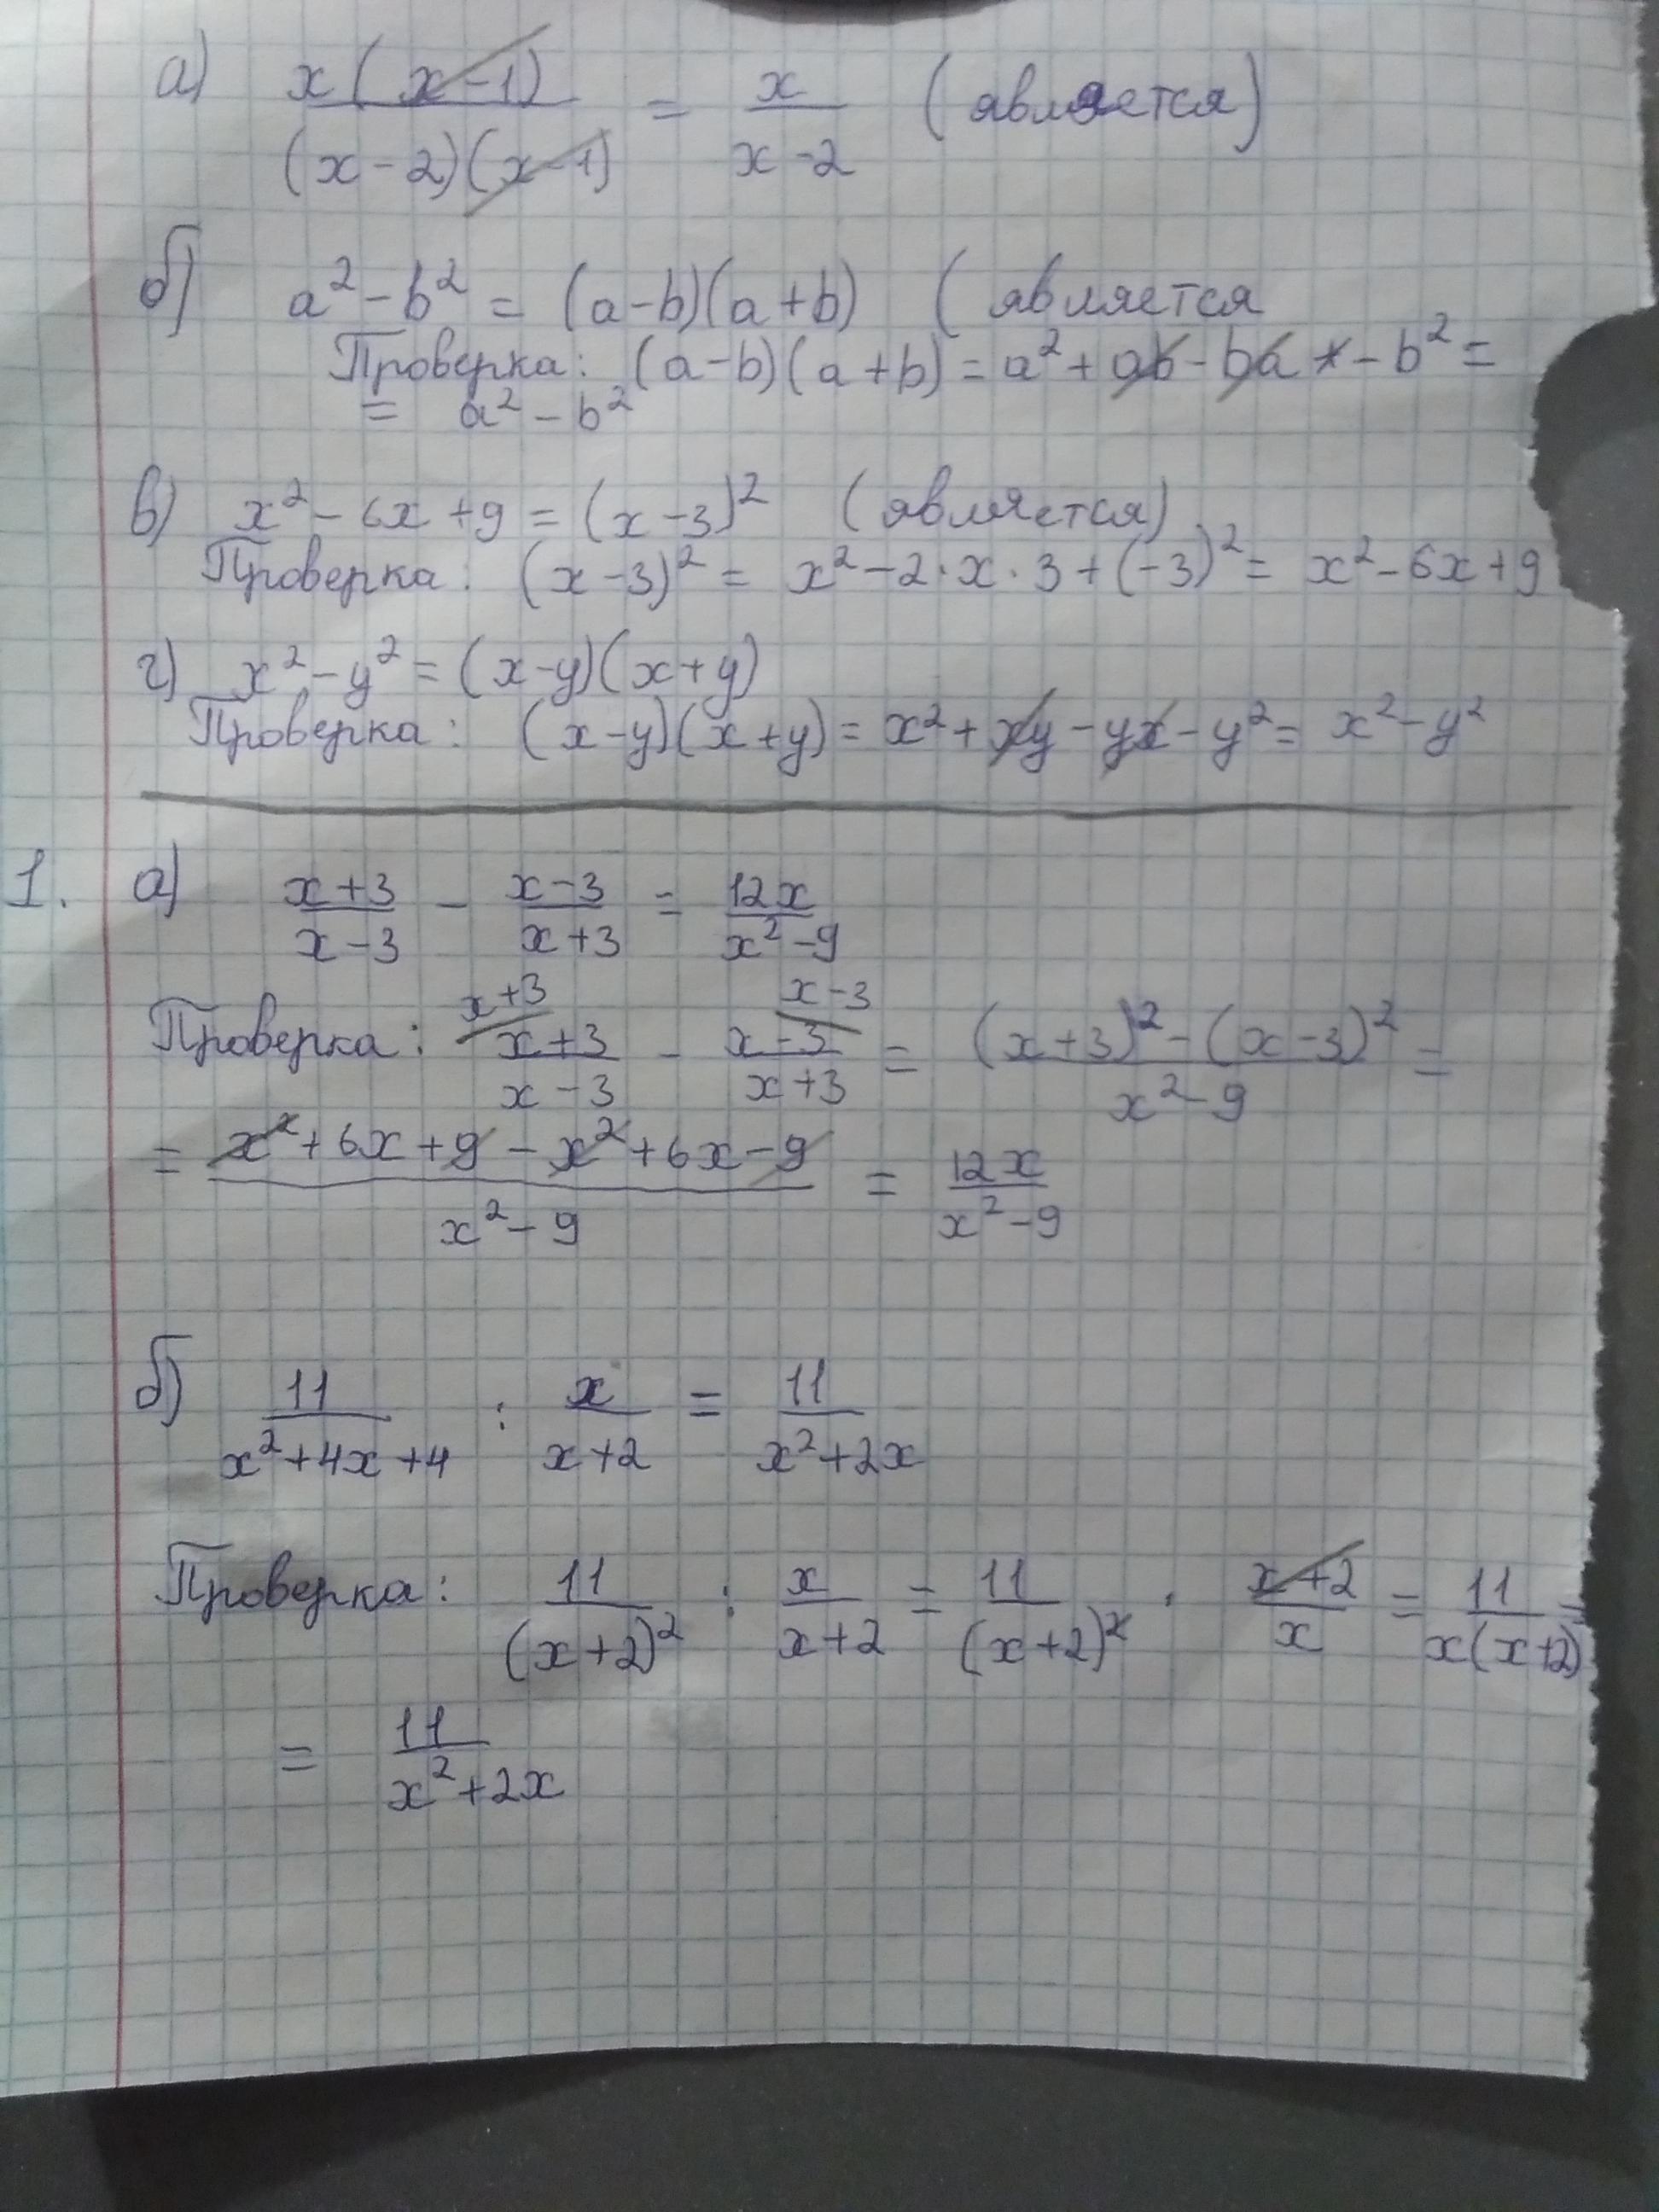 а) x(x-1)/(x-2)(x-1) = x/x-2 (является)
б) a²-b² = (a-b)(a+b) (является
Проверка: (a-b)(a+b) = a²+ab-ba-b² =
= a²-b²
в) x²-6x+9 = (x-3)² (является)
Проверка: (x-3)² = x²-2·x·3+(-3)² = x²-6x+9
г) x²-y² = (x-y)(x+y)
Проверка: (x-y)(x+y) = x²+xy-yx-y² = x²-y²
1. а) x+3/x-3 - x-3/x+3 = 12x/x²-9
x+3 x-3
Проверка: x+3/x-3 - x-3/x+3 = (x+3)²-(x-3)²/x²-9 =
= x²+6x+9-x²+6x-9/x²-9 = 12x/x²-9
б) 11/x²+4x+4 : x/x+2 = 11/x²+2x
Проверка: 11/(x+2)² : x/x+2 = 11/(x+2)² · x+2/x = 11/x(x+2) =
= 11/x²+2x